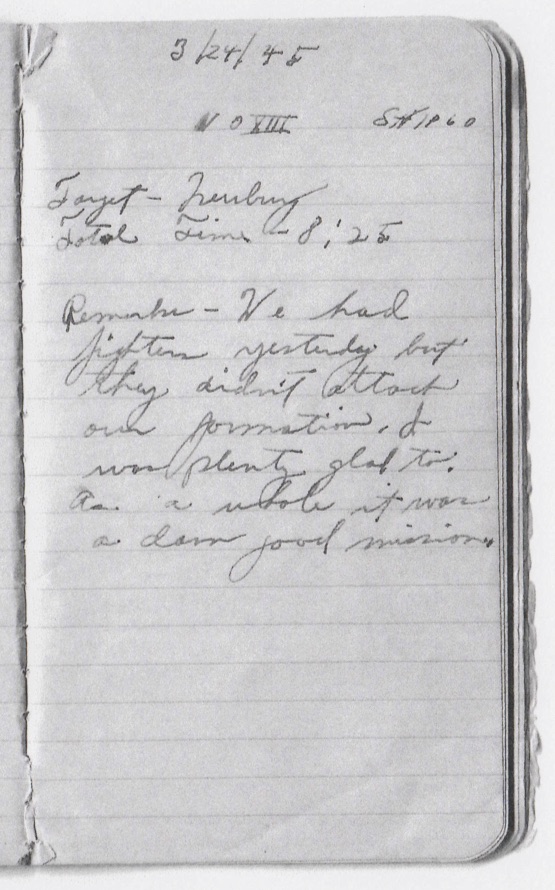 3/24/45
NO XIII
Target - Neuburg
Total Time - 8:25
Remarks - We had
fighters yesterday but
they didn't attack
our formation. I
was plenty glad to.
As a whole it was
a damn good mission.